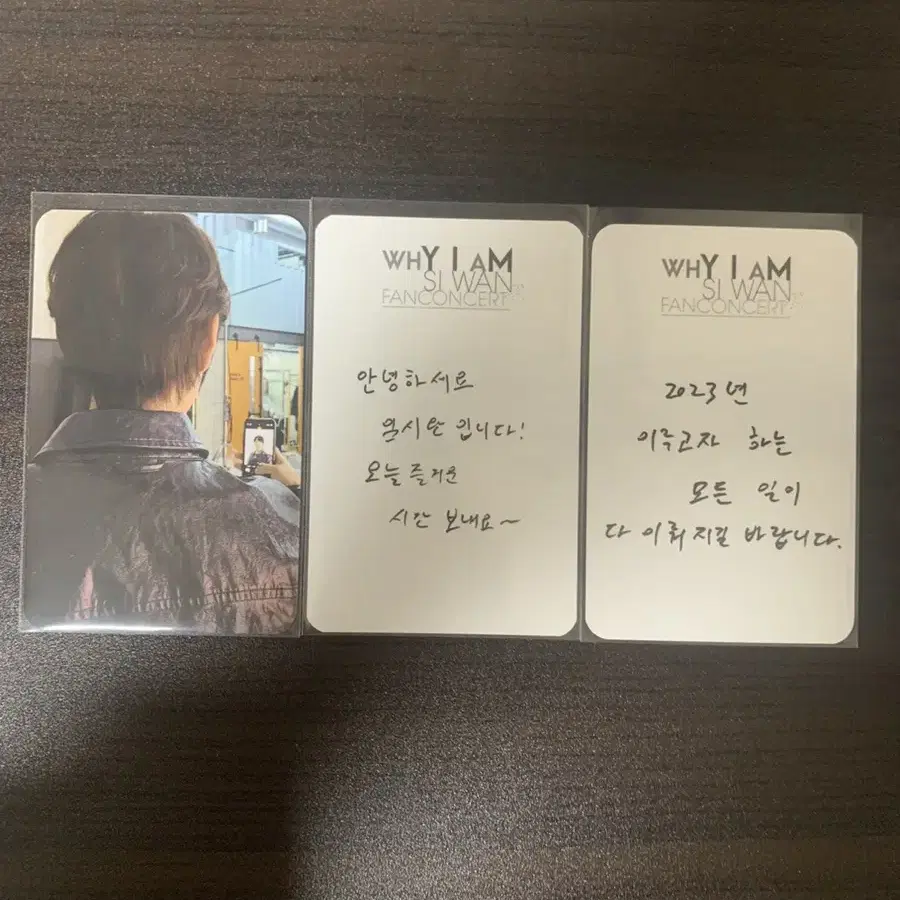 WHY I AM
SI WAN
FANCONCERT
안녕하세요
임시완 입니다!
오늘 즐거운
시간 보내요~
WHY I AM
SI WAN
FANCONCERT
2023년
이루고자 하는
모든 일이
다 이뤄지길 바랍니다.